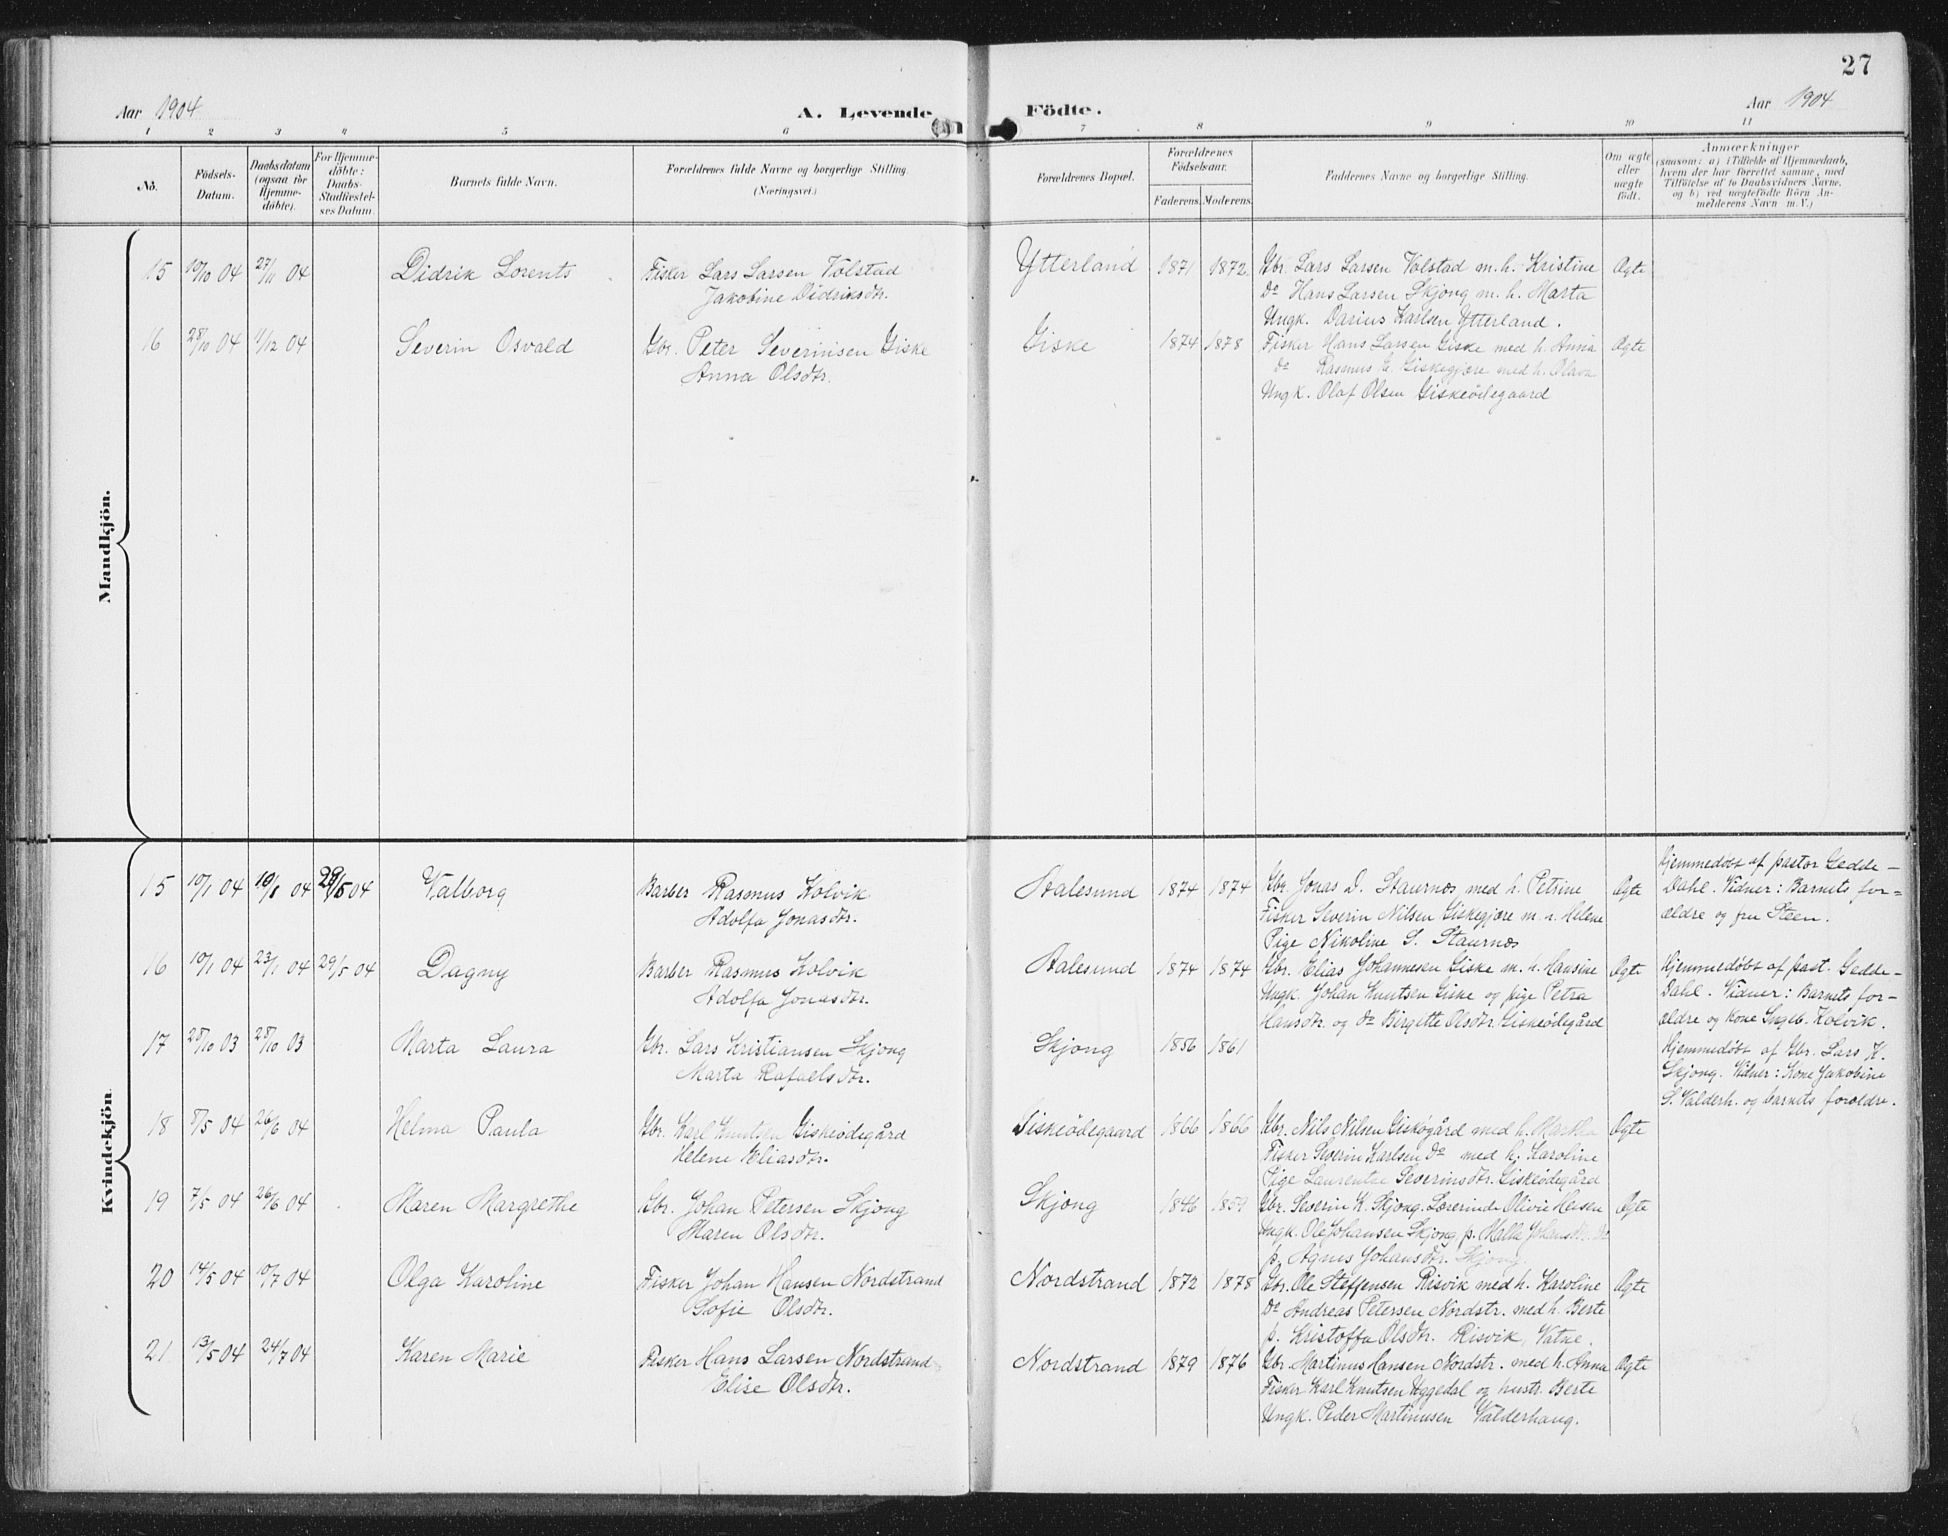 27
Aar 1904
A. Levende
Födte.
Aar 1904
1 2 3 4 5 6 7 8 9 10 11
No.
Födsels-
Datum.
Daabsdatum
(ogsaa for
Hjemme-
döbte).
For Hjemme-
döbte:
Daabs-
Stadfæstel-
ses Datum.
Barnets fulde Navn.
Forældrenes fulde Navne og borgerlige Stilling.
(Næringsvei.)
Forældrenes Bopæl.
Forældrenes
Födselsaar.
Faderens. Moderens.
Faddernes Navne og borgerlige Stilling.
Om ægte
eller
uægte
födt.
Anmærkninger
(saasom: a) i Tilfælde af Hjemmedaab,
hvem der har forrettet samme, med
Tilföielse af to Daabsvidners Navne,
og b) ved uægtefödte Börn An-
melderens Navn m. V.)
Mandkjön.
15 10/10 04 27/11 04 Didrik Lorents Fisker Lars Larsen Volstad Ytterland 1871 1872 Gbr. Lars Larsen Volstad m. h. Kristine Ægte
Jakobine Didriksdtr. Do Hans Larsen Skjong m. h. Marta
Ungk. Darius Karlsen Ytterland.
16 28/10 04 11/12 04 Severin Osvald Gbr. Peter Severinsen Giske Giske 1874 1878 Fisker Hans Larsen Giske med h. Anna Ægte
Anna Olsdtr. do Rasmus E. Giskegjære med h. Olava
Ungk. Olaf Olsen Giskeødegaard
Kvindekjön.
15 10/1 04 04 29/5 04 Valborg Barber Rasmus Kolvik Aalesund 1874 1874 Gbr. Jonas D. Staurnæs med h. Petrine Ægte Hjemmedøbt af pastor Gedde-
Adolfa Jonasdtr. Fisker Severin Nilsen Giskegjære m. h. Helene Dahl. Vidner: Barnets for-
Pige Nikoline S. Staurnæs ældre og fru Steen.
16 10/1 04 23/1 04 29/5 04 Dagny Barber Rasmus Kolvik Aalesund 1874 1874 Gbr. Elias Johannesen Giske m. h. Hansine Ægte Hjemmedøbt af past. Gedde-
Adolfa Jonasdtr. Ungk. Johan Knutsen Giske og pige Petra Dahl. Vidner: Barnets for-
Hansdtr. og do Birgitte Olsdtr. Giskeødegård ældre og Kone Ingeb. Kolvik.
17 28/10 03 28/10 03 Marta Laura Gbr. Lars Kristiansen Skjong Skjong 1856 1861 Hjemmedøbt af Gbr. Lars K.
Marta Rafaelsdtr. Skjong. Vidner: Kone Jakobine
S. Valderh. og barnets forældre.
18 8/5 04 26/6 04 Helma Paula Gbr. Karl Knutsen Giskeødegård Giskeødegaard 1866 1866 Gbr. Nils Nilsen Giskøgård med h. Martha Ægte
Helene Eliasdtr. Fisker Severin Karlsen do med h. Karoline
Pige Laurentze Severinsdtr. Giskeødegård
19 7/5 04 26/6 04 Maren Margrethe Gbr. Johan Petersen Skjong Skjong 1846 1859 Gbr. Severin K. Skjong. Lærerinde Olivie Ægte
Maren Olsdtr. Ungk. Ole Johansen Skjong, p. Johansdtr.
p. Agnes Johansdtr. Skjong.
20 14/5 04 10/7 04 Olga Karoline Fisker Johan Hansen Nordstrand Nordstrand 1872 1878 Gbr. Ole Steffensen Risvik med h. Karoline Ægte
Sofie Olsdtr. Do Andreas Petersen Nordstr. med h. Berte
p. Kristoffa Olsdtr. Risvik, Vatne.
21 13/5 04 24/7 04 Karen Marie Fisker Hans Larsen Nordstrand Nordstrand 1879 1876 Gbr. Martinus Hansen Nordstr. med h. Anna Ægte
Elise Olsdtr. Fisker Karl Knutsen Myggedal og hustr. Berte
Ungk. Peder Martinusen Valderhaug.